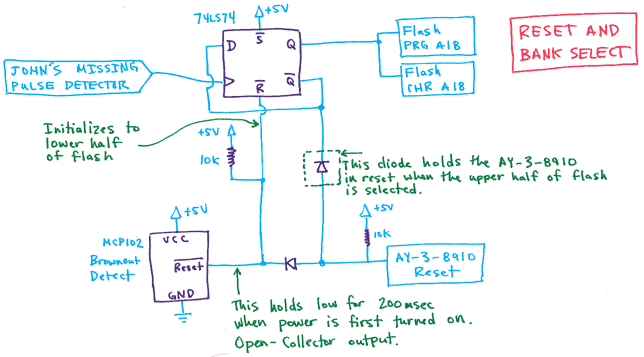 74LS74
+5V
D
S
Q
R
Q
Flash
PRG A18
Flash
CHR A18
RESET AND
BANK SELECT
JOHN'S MISSING
PULSE DETECTOR
Initializes to
lower half
of flash
+5V
10K
This diode holds the AY-3-8910
in reset when the upper half of flash
is selected.
+5V
10K
+5V
MCP102
Brownout
Detect
VCC
Reset
GND
AY-3-8910
Reset
This holds low for 200msec
when power is first turned on.
Open-Collector output.